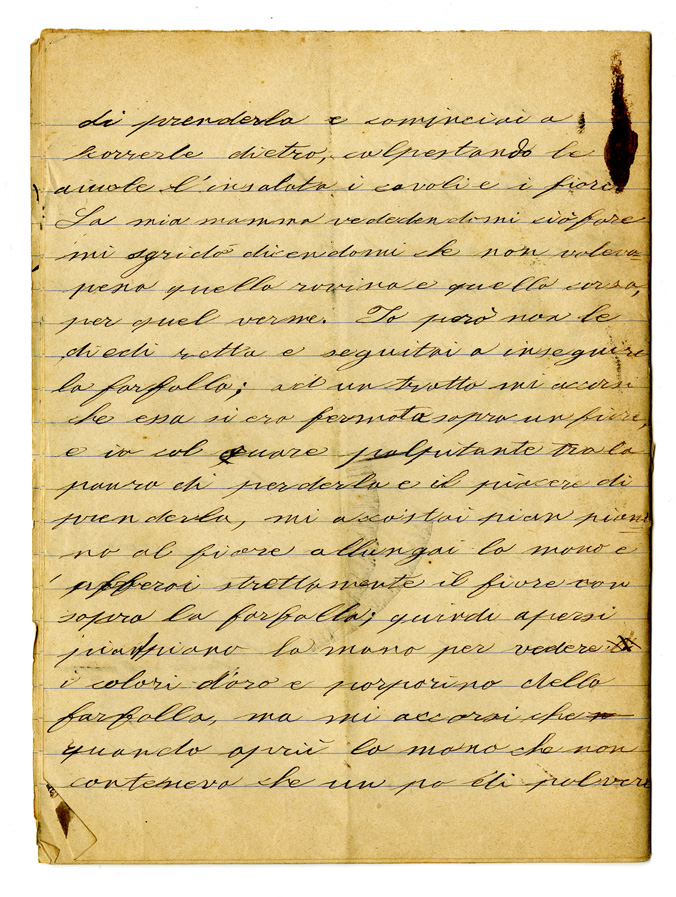 di prenderla e cominciai a
correrle dietro, calpestando le
aiuole l'insalata i cavoli e i fiori
La mia mamma vededendomi ciò fare
mi sgridò dicendomi che non valeva
pena quella rovina e quella corsa,
per quel verme. Io però non le
diedi retta e seguitai a inseguire
la farfalla; ad un tratto mi accorsi
che essa si era fermata sopra un fiore,
e io col cuore palpitante tra la
paura di perderla e il piacere di
prenderla, mi accostai pian piani
no al fiore allungai la mano e
afferai strettamente il fiore con
sopra la farfalla; quindi apersi
pian piano la mano per vedere
i colori d'oro e porporino della
farfalla, ma mi accorsi che
quando aprii la mano che non
conteneva che un po di polvere